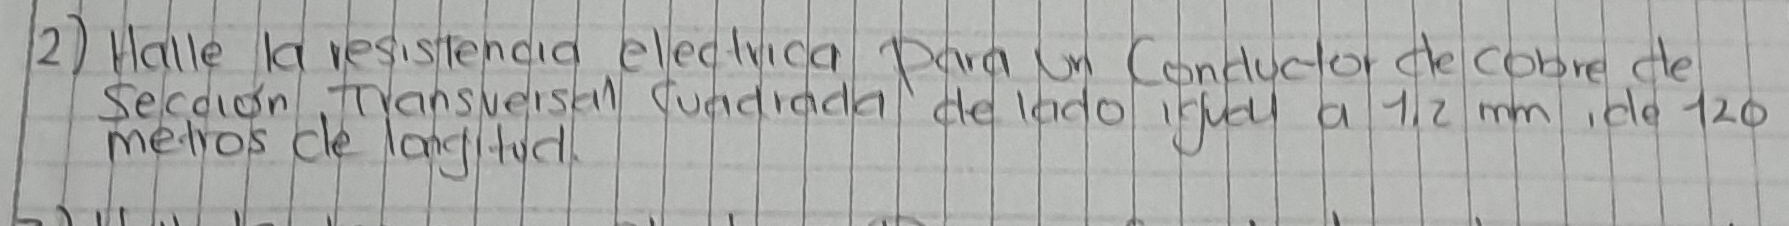 2) Halle la resistencia electrica para un Conductor de cobre de
Sección Transversal cuadrada de lado igual a 1,2 mm, de 120
metros de longitud.